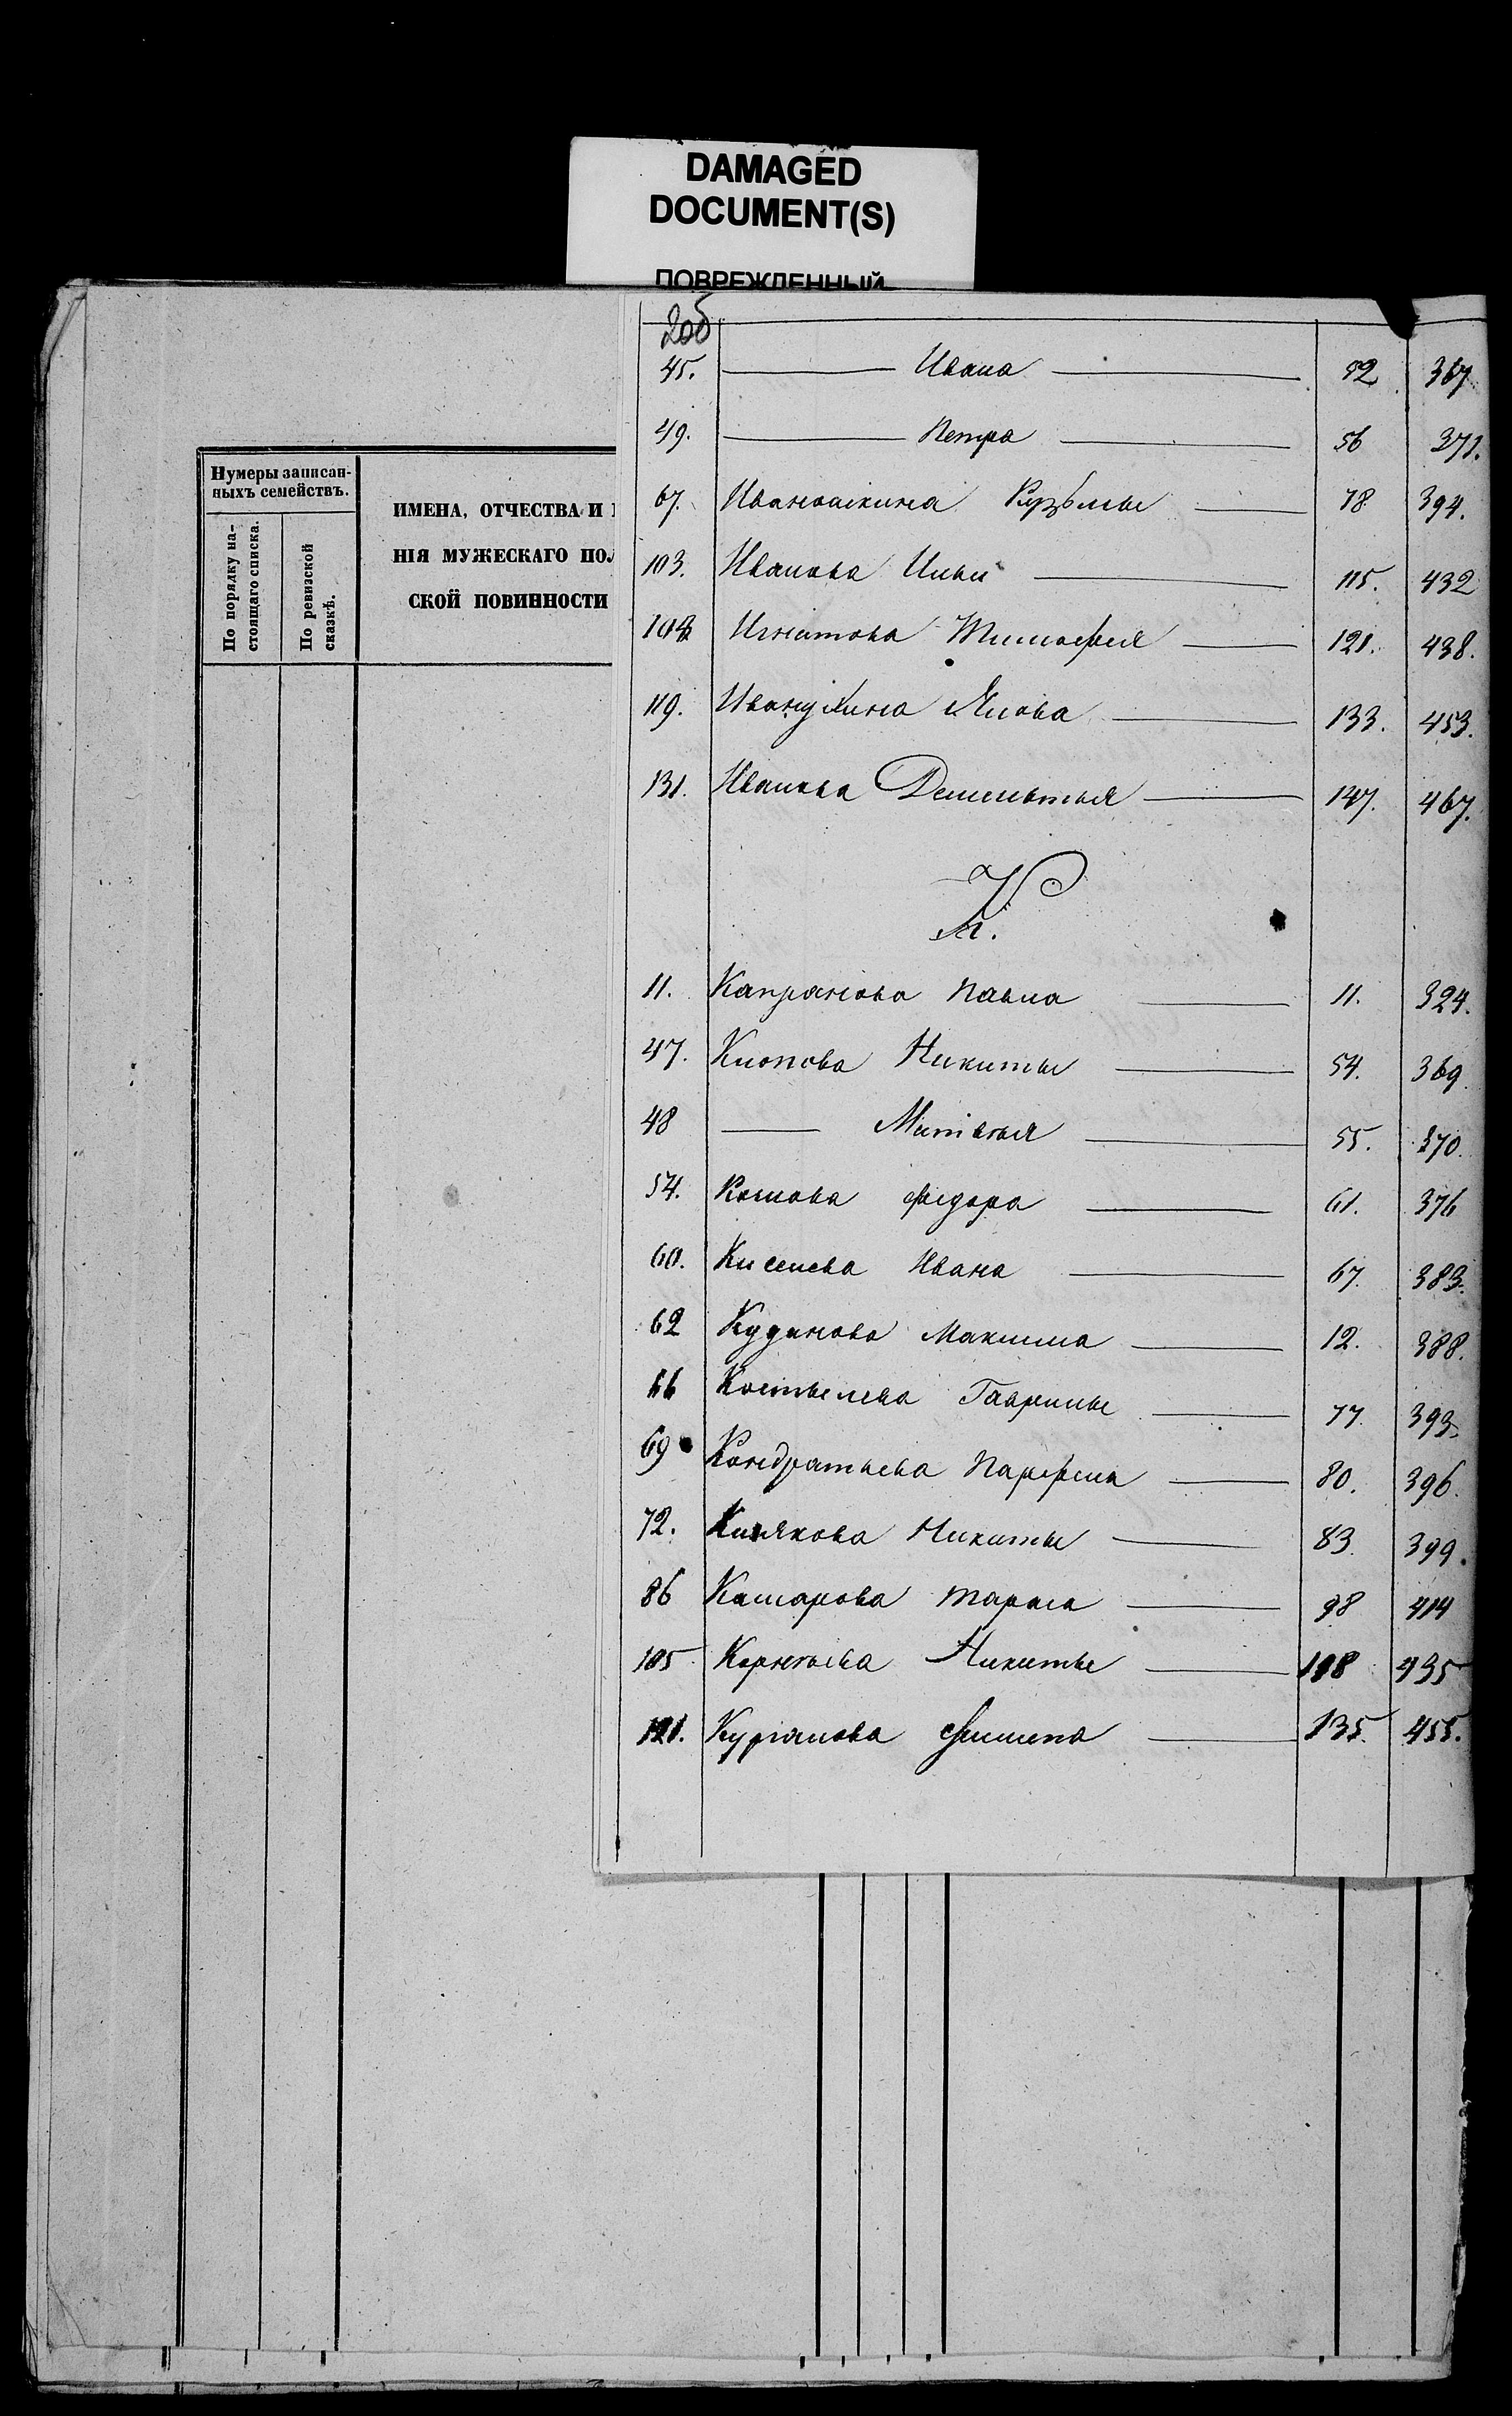 DAMAGED
DOCUMENT(S)
ПОВРЕЖДЕННЫЙ
Нумеры записан-
ныхъ семействъ.
По порядку на-
стоящаго списка.
По ревизской
сказкѣ.
ИМЕНА, ОТЧЕСТВА И
НІЯ МУЖЕСКАГО ПОЛ
СКОЙ ПОВИННОСТИ
205
45. Ивана 52 367
49. Петра 56 371.
67. Иваношкина Кузьмы 78 394.
103. Иванова Ильи 115. 432
Игнатова Тимофея 121. 438.
119. Иванушкина Якова 133. 453.
131. Иванова Дементья 147. 467.
К.
11. Капранова Павла 11. 324.
47. Клопова Никиты 54. 369
48 Матвѣя 55. 370.
54. Комова Федора 61. 376
60. Киселева Ивана 67. 383.
62 Кудинова Максима 12. 388.
66 Костылева Гаврилы 77. 393
69 Кондратьева Парфена 80. 396.
72. Никиты 83. 399.
86 Комарова Тараса 98 414
105 Корнѣева Никиты 118 435
121. 135. 455.